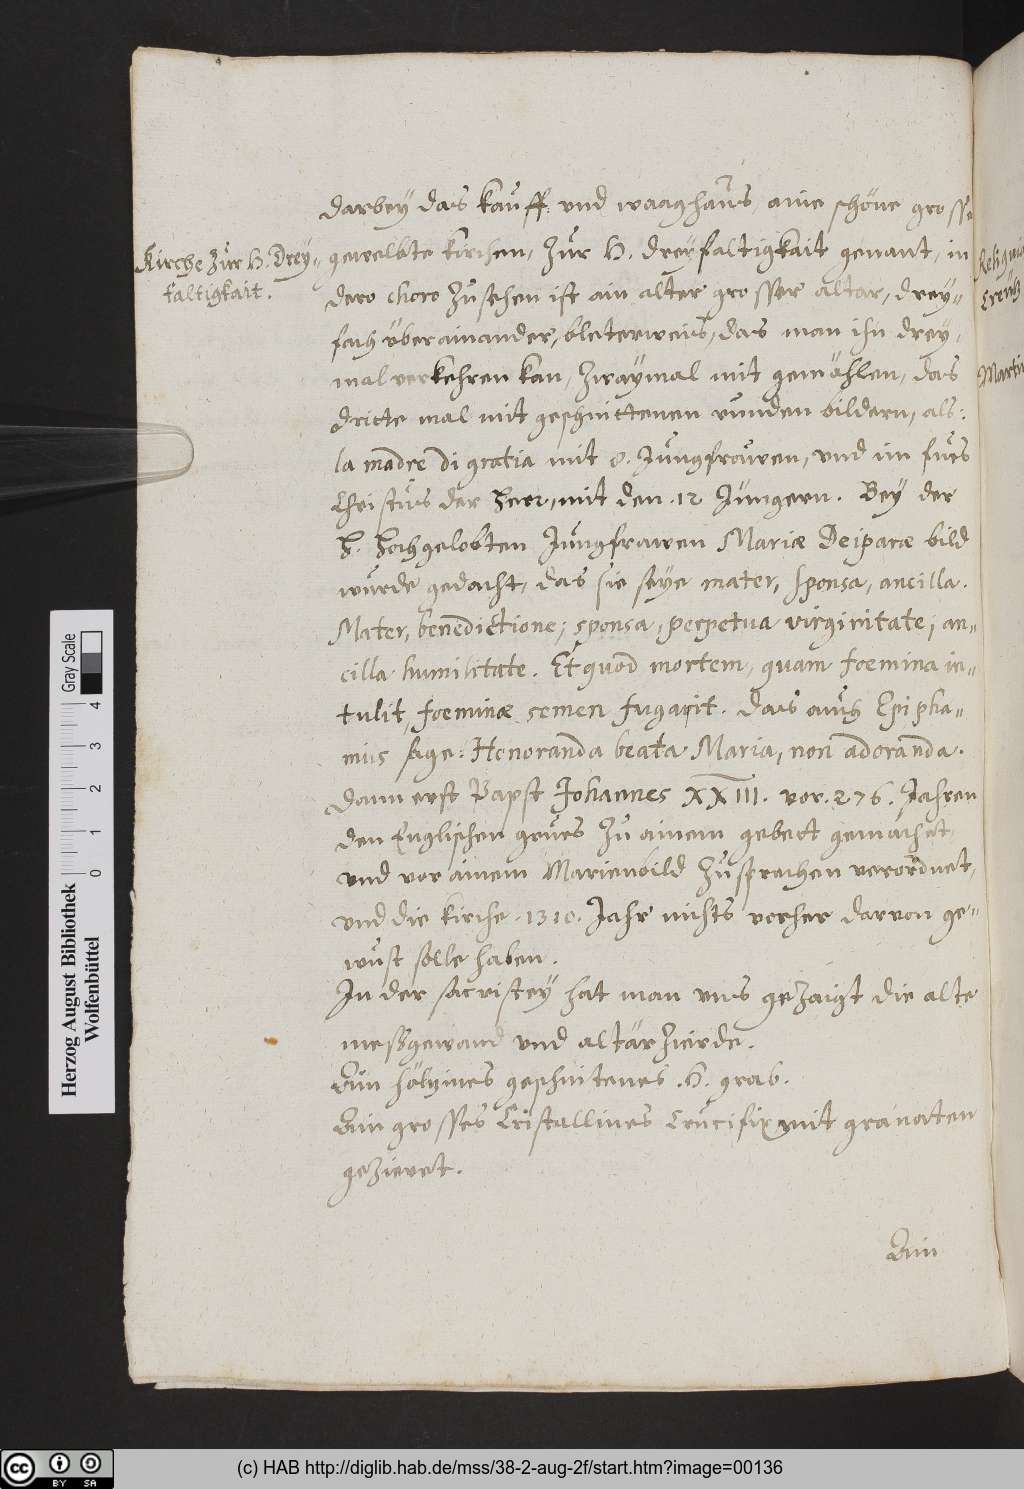 darbey das kauff: und waaghaus, aine schöne grosse
Kirche zur H. Drey-
faltigkait.
gewelbte kirchen, zur H. dreyfaltigkait genant, in
dero choro zusehen ist ain alter grosser altar, drey-
fach überainander, bleterweis, das man ihn drey-
mal verkehren kan, zwaymal mit gemählen, das
dritte mal mit geschnittenen runden bildern, als:
la madre di gratia mit 8. Jungfrauwen, und im fues
Christus der Herr, mit den .12 Jüngern. Bey der
H. Hochgelobten Jungfrawen Mariæ Deiparæ bild
wurde gedacht, das sie seye mater, sponsa, ancilla.
Mater, benedictione; sponsa, perpetua virginitate; an-
cilla humilitate. Et quod mortem, quam foemina in-
tulit, foeminæ semen fugarit. das auch Epipha-
nius sage: Honoranda beata Maria, non adoranda.
dann erst Papst Johannes XXIII. vor .276. Jahren
den Englischen grues zu ainem gebett gemachet,
und vor ainem Marienbild zusprechen verordnet,
und die kirche .1310. Jahr nichts vorher darvon ge-
wust solle haben.
In der sacristey hat man uns gezaigt die alte
messgewand und altarzierde.
Ain hölzines geschnitenes .H. grab.
Ain grosses Cristallines Crucifix mit granaten
gezieret.
Ain
Martin
Herzog August Bibliothek
Wolfenbüttel
0 1 2 3 4
Gray Scale
(c) HAB http://diglib.hab.de/mss/38-2-aug-2f/start.htm?image=00136
cc BY SA